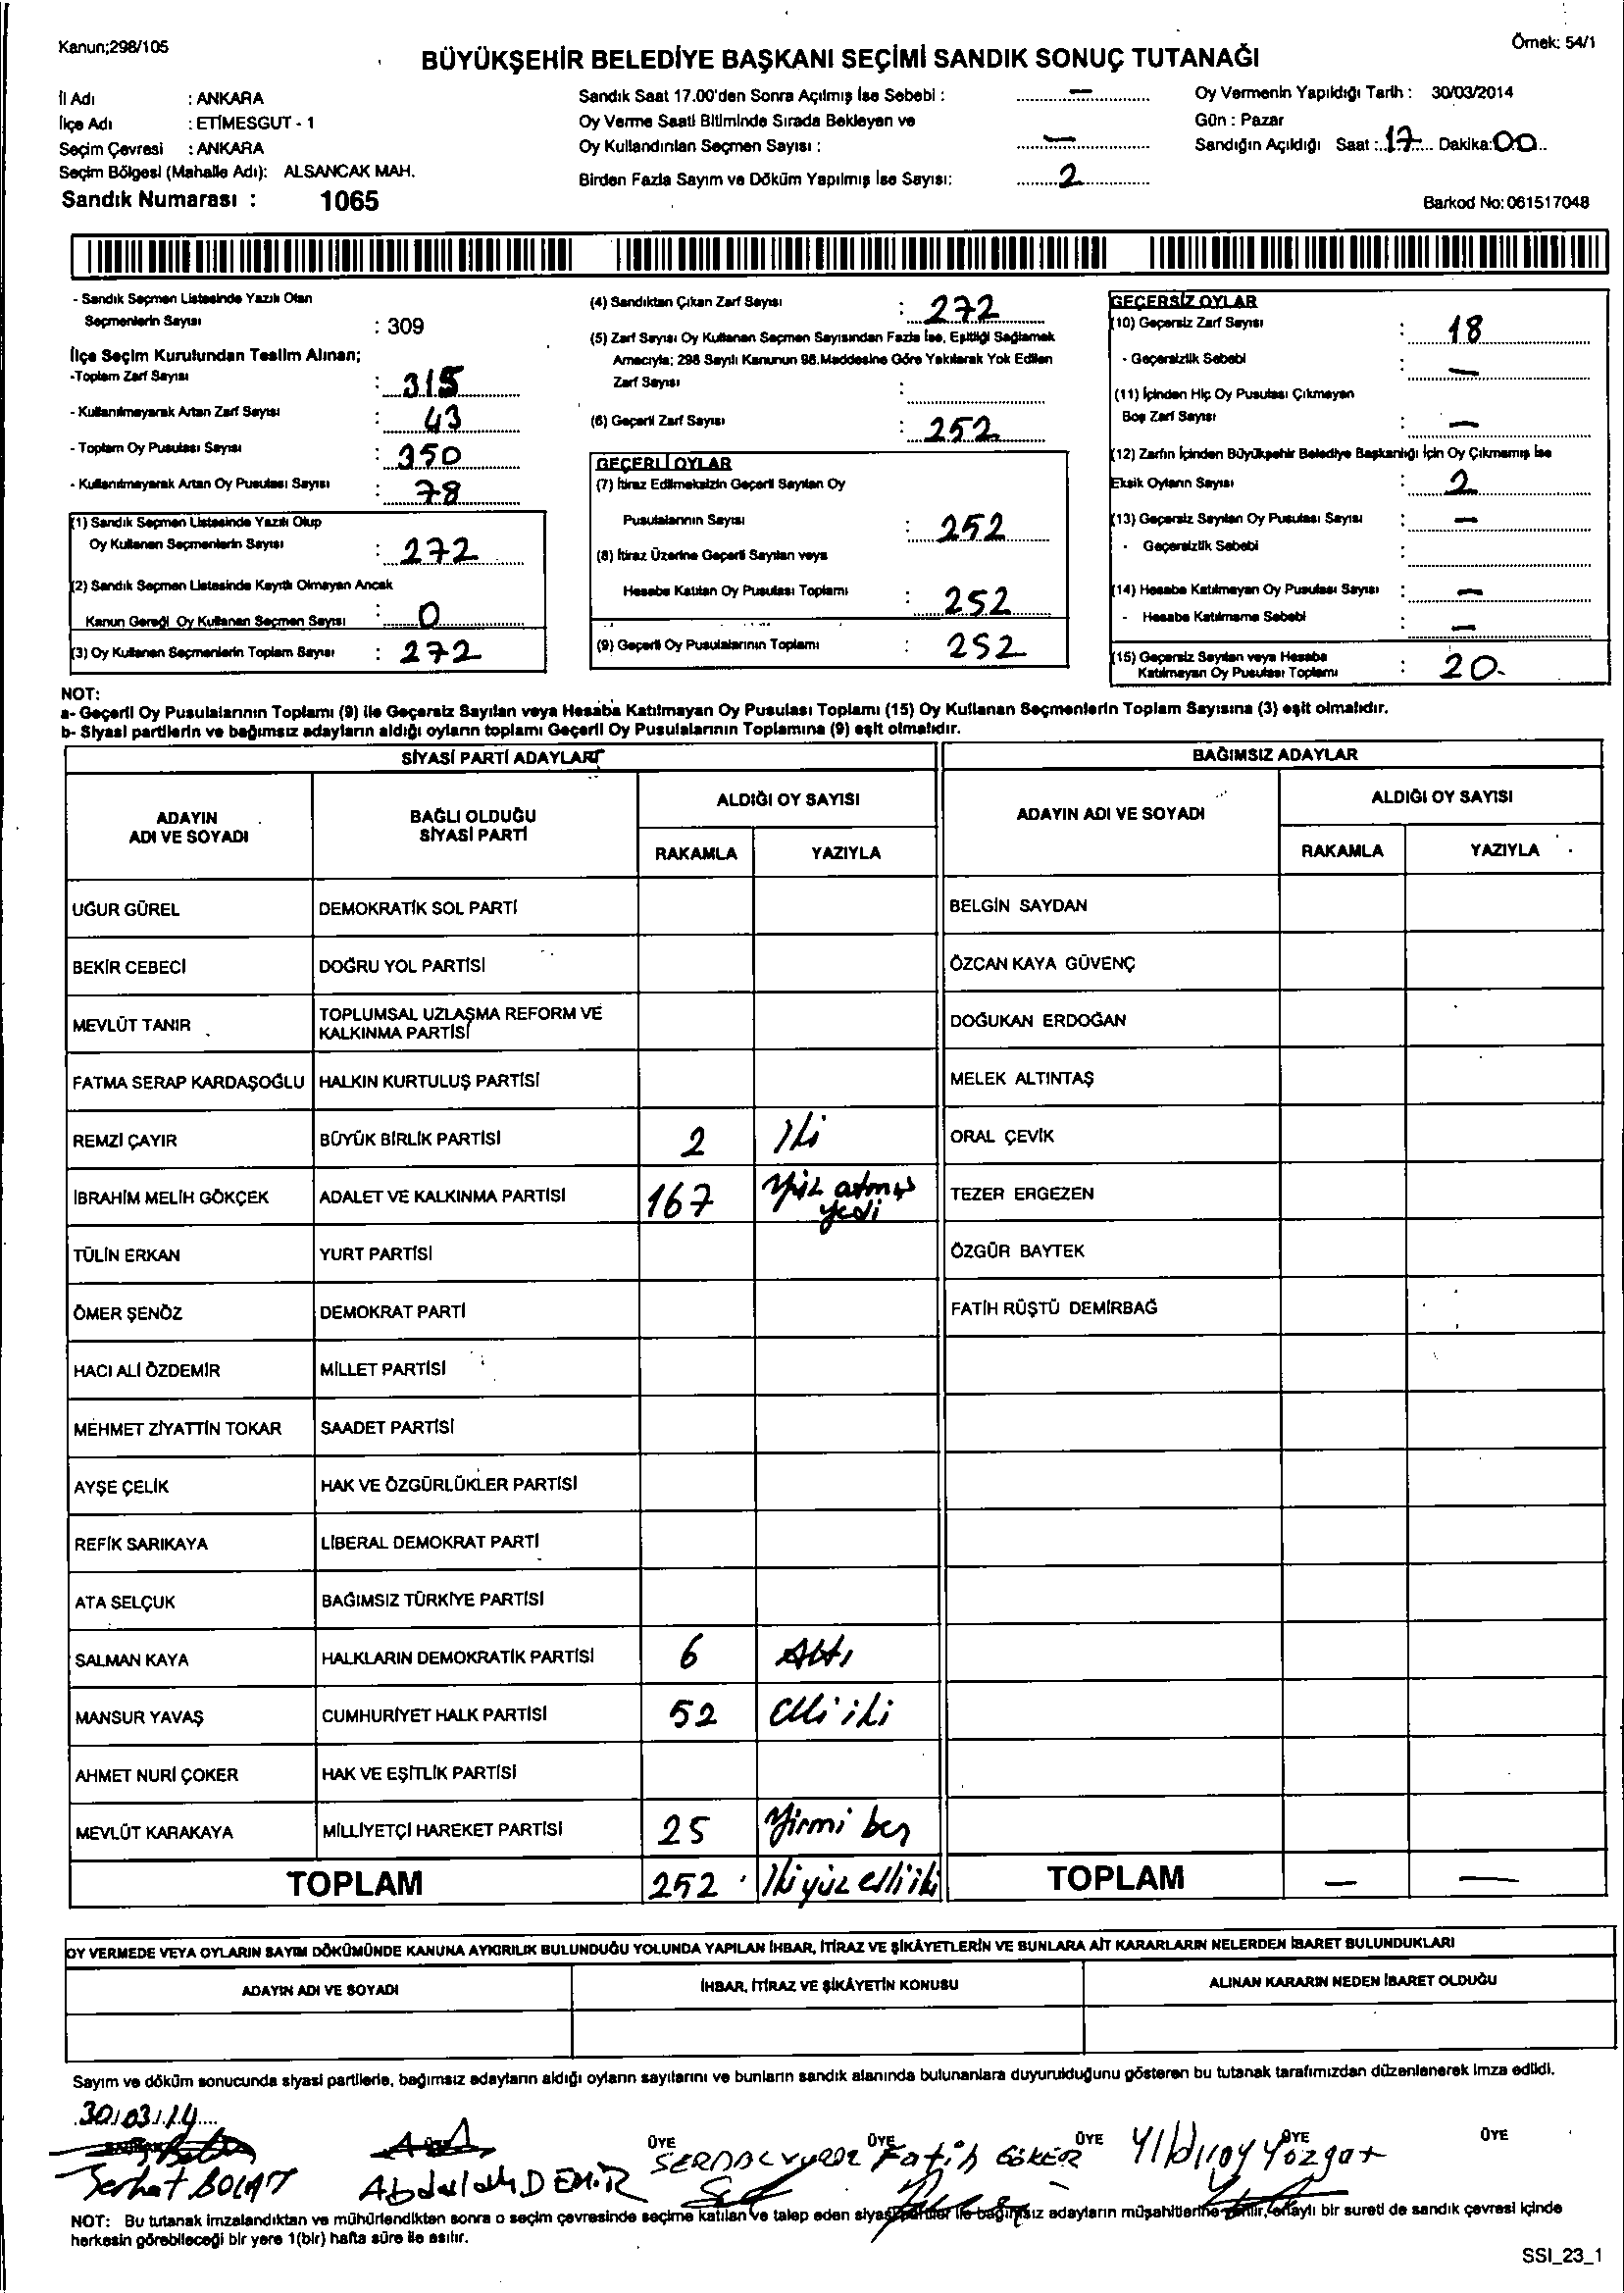 Kanun;298/105
Örnek: 54/1
BÜYÜKŞEHİR BELEDİYE BAŞKANI SEÇİMİ SANDIK SONUÇ TUTANAĞI
İl Adı : ANKARA
İlçe Adı : ETİMESGUT - 1
Seçim Çevresi : ANKARA
Seçim Bölgesi (Mahalle Adı): ALSANCAK MAH.
Sandık Numarası : 1065
Sandık Saat 17.00'den Sonra Açılmış İse Sebebi : —
Oy Verme Saati Bitiminde Sırada Bekleyen ve
Oy Kullandırılan Seçmen Sayısı : —
Birden Fazla Sayım ve Döküm Yapılmış İse Sayısı: 2
Oy Vermenin Yapıldığı Tarih : 30/03/2014
Gün : Pazar
Sandığın Açıldığı Saat : 17 Dakika: 00
Barkod No: 061517048
- Sandık Seçmen Listesinde Yazılı Olan
Seçmenlerin Sayısı : 309
İlçe Seçim Kurulundan Teslim Alınan;
-Toplam Zarf Sayısı : 315
- Kullanılmayarak Artan Zarf Sayısı : 43
- Toplam Oy Pusulası Sayısı : 350
- Kullanılmayarak Artan Oy Pusulası Sayısı : 78
(1) Sandık Seçmen Listesinde Yazılı Olup
Oy Kullanan Seçmenlerin Sayısı : 272
(2) Sandık Seçmen Listesinde Kayıtlı Olmayan Ancak
Kanun Gereği Oy Kullanan Seçmen Sayısı : 0
(3) Oy Kullanan Seçmenlerin Toplam Sayısı : 272
(4) Sandıktan Çıkan Zarf Sayısı : 272
(5) Zarf Sayısı Oy Kullanan Seçmen Sayısından Fazla İse, Eşitliği Sağlamak
Amacıyla; 298 Sayılı Kanunun 98.Maddesine Göre Yakılarak Yok Edilen
Zarf Sayısı :
(6) Geçerli Zarf Sayısı : 252
GEÇERLİ OYLAR
(7) İtiraz Edilmeksizin Geçerli Sayılan Oy
Pusulalarının Sayısı : 252
(8) İtiraz Üzerine Geçerli Sayılan veya
Hesaba Katılan Oy Pusulası Toplamı : 252
(9) Geçerli Oy Pusulalarının Toplamı : 252
GEÇERSİZ OYLAR
(10) Geçersiz Zarf Sayısı : 18
- Geçersizlik Sebebi : —
(11) İçinden Hiç Oy Pusulası Çıkmayan
Boş Zarf Sayısı : —
(12) Zarfın İçinden Büyükşehir Belediye Başkanlığı İçin Oy Çıkmamış İse
Eksik Oyların Sayısı : 2
(13) Geçersiz Sayılan Oy Pusulası Sayısı : —
- Geçersizlik Sebebi :
(14) Hesaba Katılmayan Oy Pusulası Sayısı : —
- Hesaba Katılmama Sebebi : —
(15) Geçersiz Sayılan veya Hesaba
Katılmayan Oy Pusulası Toplamı : 20
NOT:
a- Geçerli Oy Pusulalarının Toplamı (9) ile Geçersiz Sayılan veya Hesaba Katılmayan Oy Pusulası Toplamı (15) Oy Kullanan Seçmenlerin Toplam Sayısına (3) eşit olmalıdır.
b- Siyasi partilerin ve bağımsız adayların aldığı oyların toplamı Geçerli Oy Pusulalarının Toplamına (9) eşit olmalıdır.
SİYASİ PARTİ ADAYLARI
BAĞIMSIZ ADAYLAR
ADAYIN ADI VE SOYADI
BAĞLI OLDUĞU SİYASİ PARTİ
ALDIĞI OY SAYISI
RAKAMLA YAZIYLA
ADAYIN ADI VE SOYADI
ALDIĞI OY SAYISI
RAKAMLA YAZIYLA
UĞUR GÜREL DEMOKRATİK SOL PARTİ BELGİN SAYDAN
BEKİR CEBECİ DOĞRU YOL PARTİSİ ÖZCAN KAYA GÜVENÇ
MEVLÜT TANIR TOPLUMSAL UZLAŞMA REFORM VE KALKINMA PARTİSİ DOĞUKAN ERDOĞAN
FATMA SERAP KARDAŞOĞLU HALKIN KURTULUŞ PARTİSİ MELEK ALTINTAŞ
REMZİ ÇAYIR BÜYÜK BİRLİK PARTİSİ 2 İki ORAL ÇEVİK
İBRAHİM MELİH GÖKÇEK ADALET VE KALKINMA PARTİSİ 167 yüz atmış yedi TEZER ERGEZEN
TÜLİN ERKAN YURT PARTİSİ ÖZGÜR BAYTEK
ÖMER ŞENÖZ DEMOKRAT PARTİ FATİH RÜŞTÜ DEMİRBAĞ
HACI ALİ ÖZDEMİR MİLLET PARTİSİ
MEHMET ZİYATTİN TOKAR SAADET PARTİSİ
AYŞE ÇELİK HAK VE ÖZGÜRLÜKLER PARTİSİ
REFİK SARIKAYA LİBERAL DEMOKRAT PARTİ
ATA SELÇUK BAĞIMSIZ TÜRKİYE PARTİSİ
SALMAN KAYA HALKLARIN DEMOKRATİK PARTİSİ 6 Altı
MANSUR YAVAŞ CUMHURİYET HALK PARTİSİ 52 elli iki
AHMET NURİ ÇOKER HAK VE EŞİTLİK PARTİSİ
MEVLÜT KARAKAYA MİLLİYETÇİ HAREKET PARTİSİ 25 yirmi beş
TOPLAM 252 İkiyüz elli iki TOPLAM — —
OY VERMEDE VEYA OYLARIN SAYIM DÖKÜMÜNDE KANUNA AYKIRILIK BULUNDUĞU YOLUNDA YAPILAN İHBAR, İTİRAZ VE ŞİKÂYETLERİN VE BUNLARA AİT KARARLARIN NELERDEN İBARET BULUNDUKLARI
ADAYIN ADI VE SOYADI İHBAR, İTİRAZ VE ŞİKÂYETİN KONUSU ALINAN KARARIN NEDEN İBARET OLDUĞU
Sayım ve döküm sonucunda siyasi partilerle, bağımsız adayların aldığı oyların sayılarını ve bunların sandık alanında bulunanlara duyurulduğunu gösteren bu tutanak tarafımızdan düzenlenerek imza edildi.
30/03/14
ÜYE ÜYE ÜYE ÜYE ÜYE
Serhat BOLAT Abdullah DEMİR SERDAL Fatih GÖKER Yıldıray Yozgat
NOT: Bu tutanak imzalandıktan ve mühürlendikten sonra o seçim çevresinde seçime katılan ve talep eden siyasi partiler ile bağımsız adayların müşahitlerine verilir, onaylı bir sureti de sandık çevresi içinde
herkesin görebileceği bir yere 1(bir) hafta süre ile asılır.
SSI_23_1